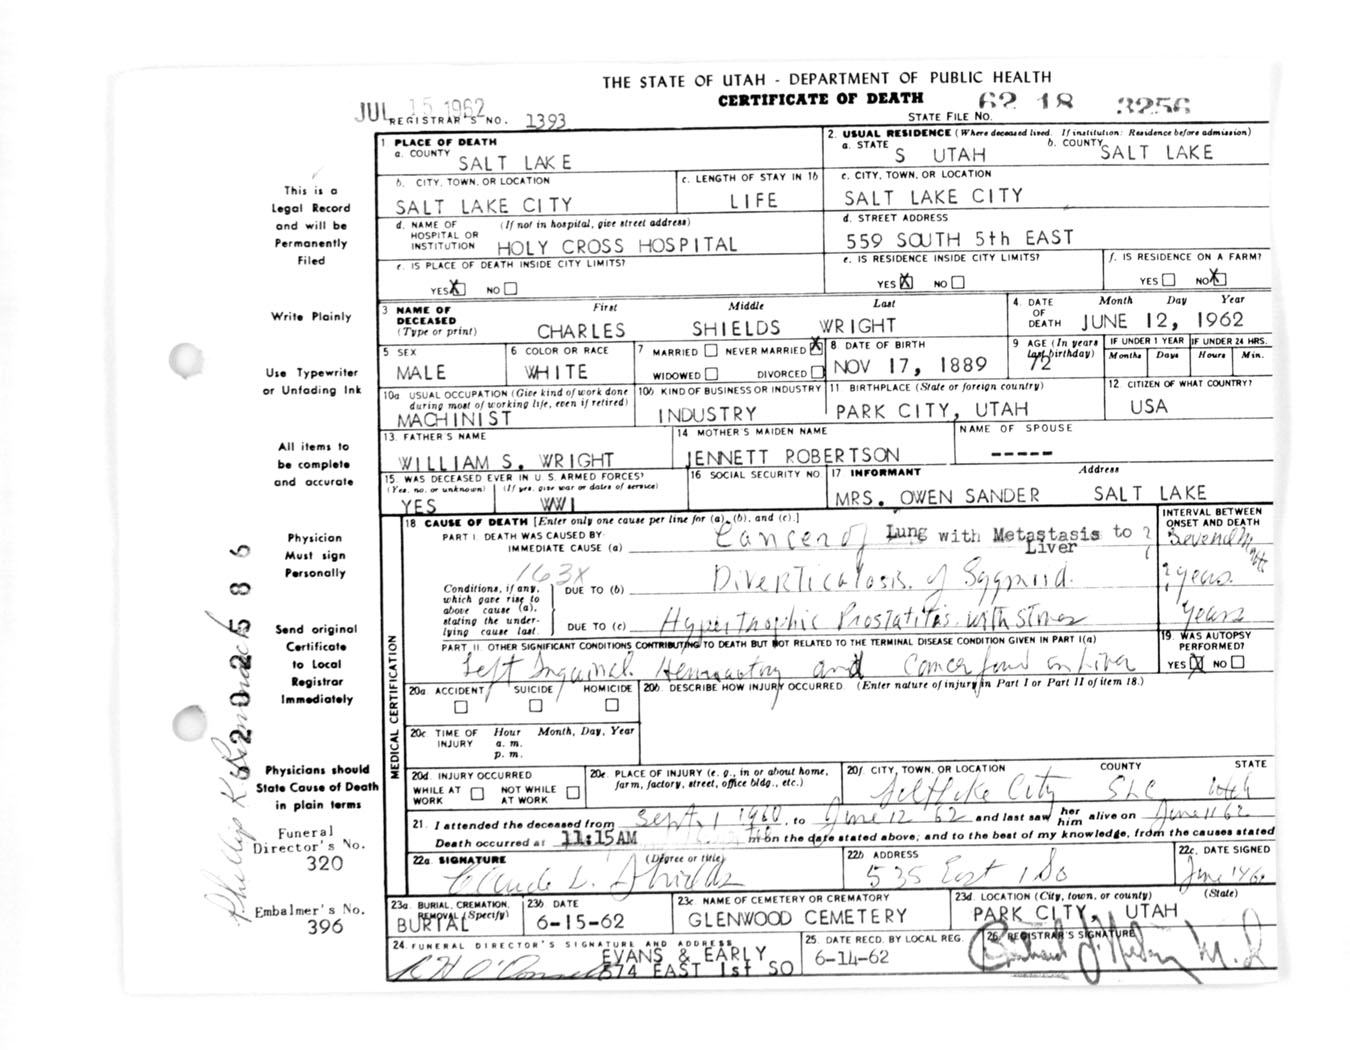 THE STATE OF UTAH - DEPARTMENT OF PUBLIC HEALTH
CERTIFICATE OF DEATH
62 18 3256
JUL 15 1962
REGISTRAR'S NO. 1393
STATE FILE NO.
This is a
Legal Record
and will be
Permanently
Filed
Write Plainly
Use Typewriter
or Unfading Ink
All items to
be complete
and accurate
Physician
Must sign
Personally
Send original
Certificate
to Local
Registrar
Immediately
Physicians should
State Cause of Death
in plain terms
Funeral
Director's No.
320
Embalmer's No.
396
1 PLACE OF DEATH
a. COUNTY SALT LAKE
2. USUAL RESIDENCE (Where deceased lived. If institution: Residence before admission)
a. STATE S UTAH b. COUNTY SALT LAKE
b. CITY, TOWN, OR LOCATION
SALT LAKE CITY
c. LENGTH OF STAY IN 1b
LIFE
c. CITY, TOWN, OR LOCATION
SALT LAKE CITY
d. NAME OF HOSPITAL OR INSTITUTION (If not in hospital, give street address)
HOLY CROSS HOSPITAL
d. STREET ADDRESS
559 SOUTH 5th EAST
e. IS PLACE OF DEATH INSIDE CITY LIMITS?
YES X NO
e. IS RESIDENCE INSIDE CITY LIMITS?
YES X NO
f. IS RESIDENCE ON A FARM?
YES NO X
3 NAME OF DECEASED (Type or print)
First Middle Last
CHARLES SHIELDS WRIGHT
4. DATE OF DEATH Month Day Year
JUNE 12, 1962
5 SEX
MALE
6 COLOR OR RACE
WHITE
7 MARRIED NEVER MARRIED X
WIDOWED DIVORCED
8 DATE OF BIRTH
NOV 17, 1889
9 AGE (In years last birthday)
72
IF UNDER 1 YEAR
Months Days
IF UNDER 24 HRS.
Hours Min.
10a USUAL OCCUPATION (Give kind of work done during most of working life, even if retired)
MACHINIST
10b KIND OF BUSINESS OR INDUSTRY
INDUSTRY
11 BIRTHPLACE (State or foreign country)
PARK CITY, UTAH
12 CITIZEN OF WHAT COUNTRY?
USA
13. FATHER'S NAME
WILLIAM S. WRIGHT
14 MOTHER'S MAIDEN NAME
JENNETT ROBERTSON
NAME OF SPOUSE
-----
15 WAS DECEASED EVER IN U.S. ARMED FORCES?
(Yes, no, or unknown) (If yes, give war or dates of service)
YES WWI
16 SOCIAL SECURITY NO
17 INFORMANT Address
MRS. OWEN SANDER SALT LAKE
MEDICAL CERTIFICATION
18 CAUSE OF DEATH [Enter only one cause per line for (a), (b), and (c).]
PART I. DEATH WAS CAUSED BY:
IMMEDIATE CAUSE (a) Cancer of Lung with Metastasis to Liver ?
INTERVAL BETWEEN ONSET AND DEATH
163X
Conditions, if any, which gave rise to above cause (a), stating the underlying cause last.
DUE TO (b) Diverticulosis of
? years
DUE TO (c) Hypertrophic Prostatitis with stones
years
PART II. OTHER SIGNIFICANT CONDITIONS CONTRIBUTING TO DEATH BUT NOT RELATED TO THE TERMINAL DISEASE CONDITION GIVEN IN PART I(a)
Left Inguinal and Cancer found in Liver
19. WAS AUTOPSY PERFORMED?
YES X NO
20a ACCIDENT SUICIDE HOMICIDE
20b. DESCRIBE HOW INJURY OCCURRED. (Enter nature of injury in Part I or Part II of item 18.)
20c TIME OF INJURY Hour Month, Day, Year
a. m.
p. m.
20d. INJURY OCCURRED
WHILE AT WORK NOT WHILE AT WORK
20e. PLACE OF INJURY (e. g., in or about home, farm, factory, street, office bldg., etc.)
20f. CITY, TOWN, OR LOCATION COUNTY STATE
Salt Lake City SLC Utah
21. I attended the deceased from Sept 1 1960, to June 12 62 and last saw her him alive on June 11 62
Death occurred at 11:15AM m on the date stated above; and to the best of my knowledge, from the causes stated
22a. SIGNATURE (Degree or title)
Claude L. Shields
22b ADDRESS
535 East 1 So
22c. DATE SIGNED
23a. BURIAL, CREMATION, REMOVAL (Specify)
BURIAL
23b DATE
6-15-62
23c. NAME OF CEMETERY OR CREMATORY
GLENWOOD CEMETERY
23d. LOCATION (City, town, or county) (State)
PARK CITY, UTAH
24. FUNERAL DIRECTOR'S SIGNATURE AND ADDRESS
EVANS & EARLY
574 EAST 1st SO
25. DATE RECD. BY LOCAL REG.
6-14-62
26. REGISTRAR'S SIGNATURE